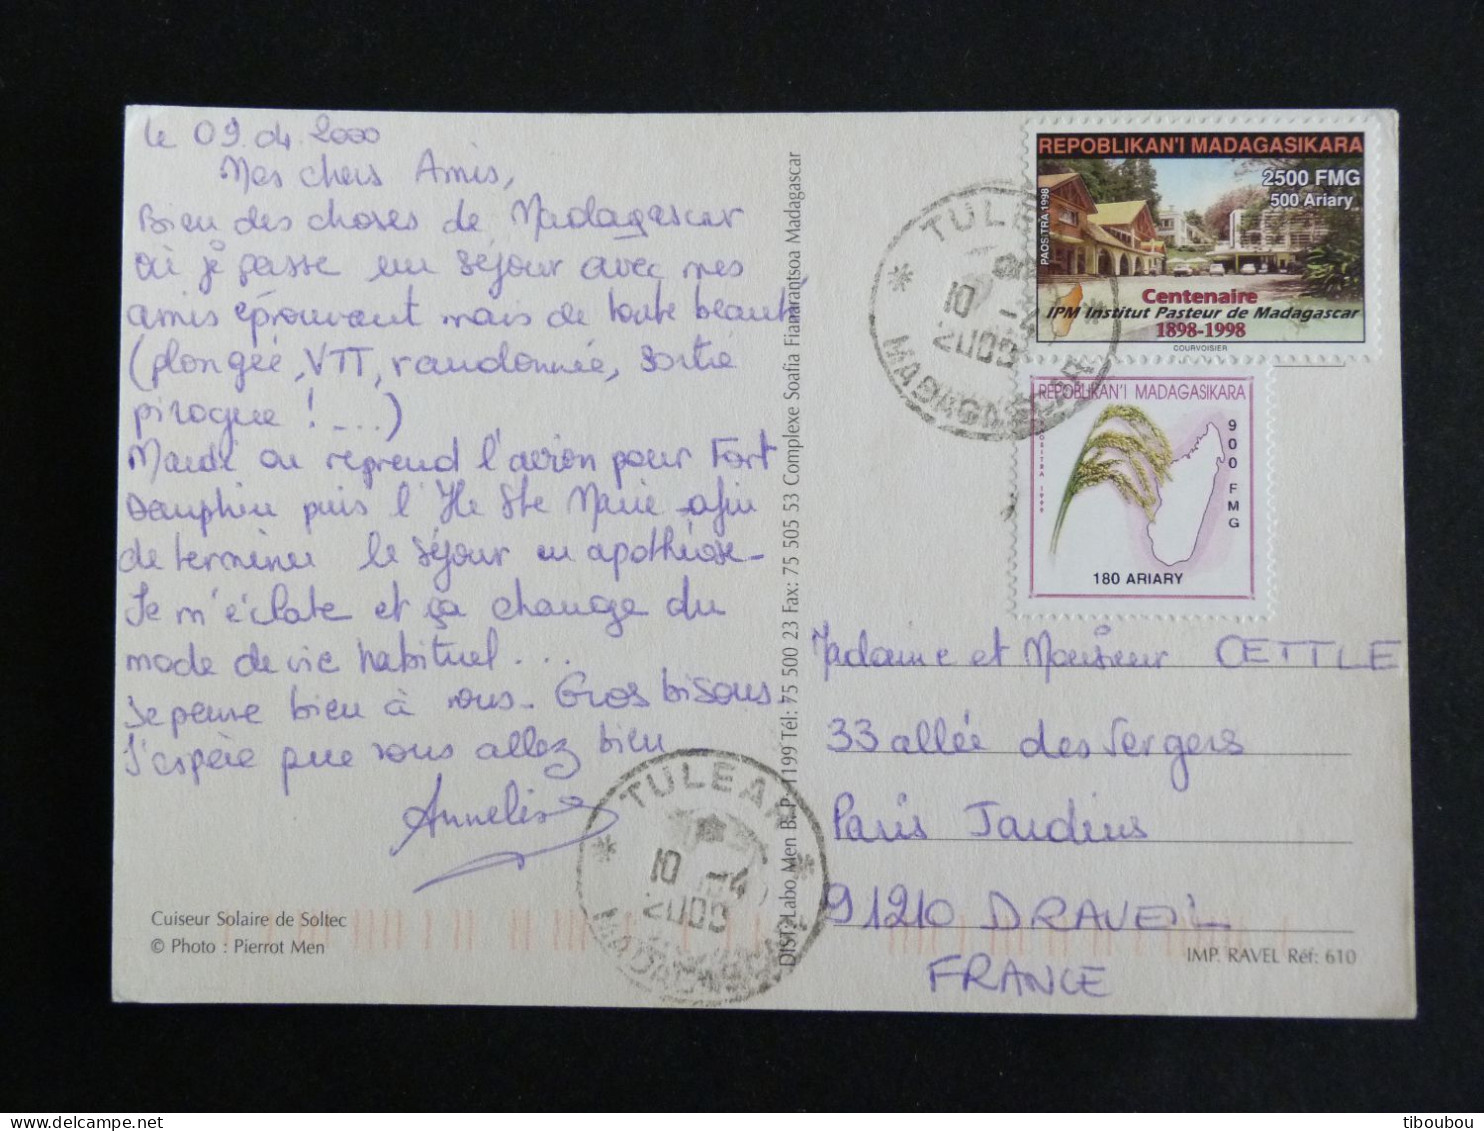 le 09.04.2000
Mes chers Amis,
Bien des choses de Madagascar
où je passe un séjour avec mes
amis éprouvant mais de toute beauté
(plongée, VTT, randonnée, sortie
pirogue !....)
Mardi on reprend l'avion pour Fort
Dauphin puis l'Ile Ste Marie afin
de terminer le séjour en apothéose_
Je m'éclate et ça change du
mode de vie habituel...
Je pense bien à vous_ Gros bisous,
J'espère que vous allez bien
Annelise
Cuiseur Solaire de Soltec
© Photo : Pierrot Men
DIST: Labo Men B. P. 1199 Tél: 75 500 23 Fax: 75 505 53 Complexe Soafia Fianarantsoa Madagascar
TULEAR
10 -4
2000
MADAGASCAR
REPOBLIKAN'I MADAGASIKARA
2500 FMG
500 Ariary
PAOSITRA 1998
Centenaire
IPM Institut Pasteur de Madagascar
1898-1998
COURVOISIER
TULEAR
10 -4
2000
MADAGASCAR
REPOBLIKAN'I MADAGASIKARA
900 FMG
180 ARIARY
Madame et Monsieur OETTLE
33 allée des Vergers
Paris Jardins
91210 DRAVEIL
FRANCE
IMP. RAVEL Réf: 610
delcampe.net
tiboubou